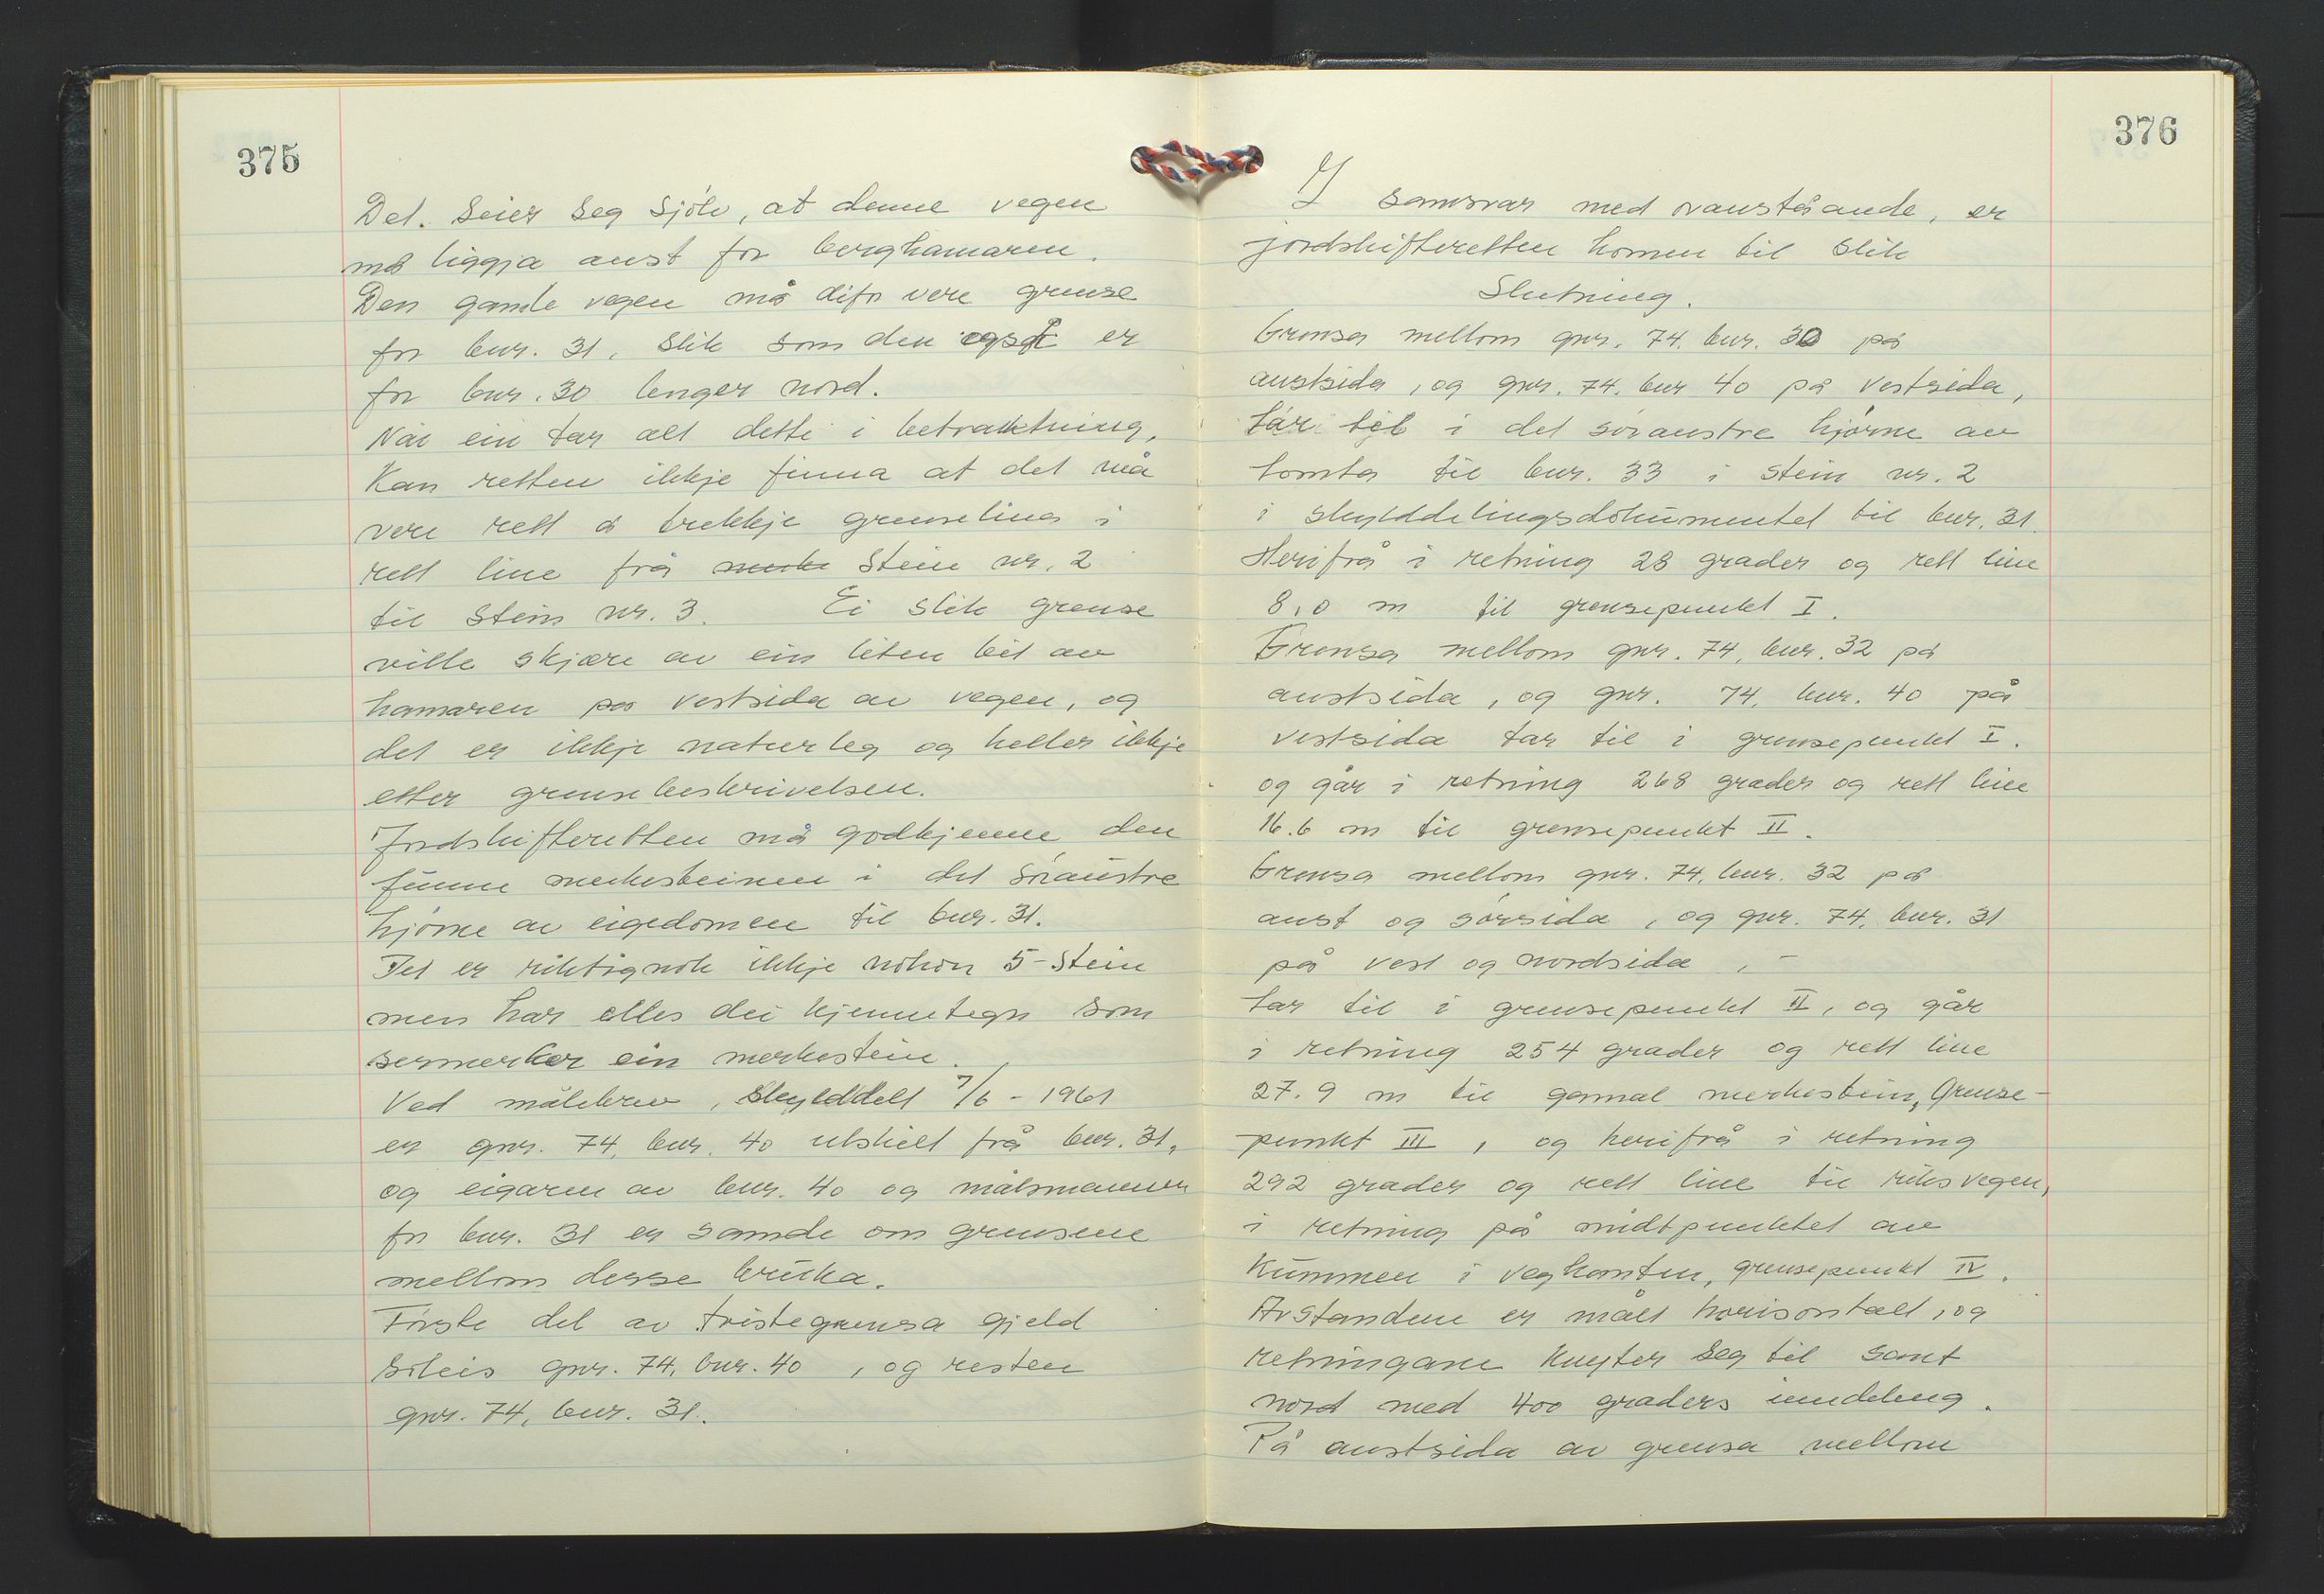 375
Det. seier seg sjølv, at denne vegen
må liggja aust for berghamaren.
Den gamle vegen må difor vere grense
for bnr. 31, slik som den også er
for bnr. 30 lenger nord.
Når ein tar alt dette i betraktning,
kan retten ikkje finna at det må
vere rett å trekkje grenselina i
rett line frå merke stein nr. 2
til stein nr. 3. Ei slik grense
ville skjære av ein liten bit av
hamaren på vestsida av vegen, og
det er ikkje naturleg og heller ikkje
etter grensebeskrivelsen.
Jordskifteretten må godkjenne den
funne merkesteinen i det søraustre
hjørne av eigedomen til bnr. 31.
Det er riktignok ikkje nokon 5-stein
men har elles dei kjennetegn som
sermerker ein merkestein.
Ved målebrev, skylddelt 7/6 - 1961
er gnr. 74, bnr. 40 utskilt frå bnr. 31,
og eigaren av bnr. 40 og målsmannen
for bnr. 31 er samde om grensene
mellom desse bruka.
Første del av tvistegrensa gjeld
såleis gnr. 74, bnr. 40, og resten
gnr. 74, bnr. 31.
376
I samsvar med ovanståande, er
jordskifteretten komen til slik
Slutning.
Grensa mellom gnr. 74. bnr. 30 på
austsida, og gnr. 74. bnr 40 på vestsida,
tar til i det søraustre hjørne av
tomta til bnr. 33 i stein nr. 2
i skylddelingsdokumentet til bnr. 31.
Herifrå i retning 28 grader og rett line
8,0 m til grensepunkt I.
Grensa mellom gnr. 74, bnr. 32 på
austsida, og gnr. 74, bnr. 40 på
vestsida tar til i grensepunkt I.
og går i retning 268 grader og rett line
16.6 m til grensepunkt II.
Grensa mellom gnr. 74, bnr. 32 på
aust og sørsida, og gnr. 74, bnr. 31
på vest og nordsida, -
tar til i grensepunkt II, og går
i retning 254 grader og rett line
27.9 m til gamal merkestein, Grense-
punkt III, og herifrå i retning
292 grader og rett line til riksvegen,
i retning på midtpunktet av
kummen i vegkanten, grensepunkt IV.
Avstandene er målt horisontalt, og
retningane knyter seg til sant
nord med 400 graders inndeling.
På austsida av grensa mellom